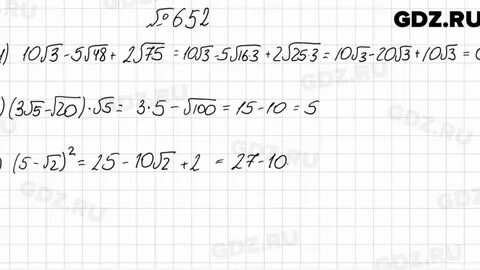 №652
GDZ.RU
) 10√3-5√48+ 2√75 = 10√3-5√16·3 +2√25·3 = 10√3-20√3+10√3 = 0
) (3√5-√20)·√5= 3·5-√100 = 15-10 = 5
) (5-√2)² = 25-10√2 +2 = 27-10
GDZ.RU
GDZ.RU
GDZ.RU
GDZ.RU
GDZ.RU